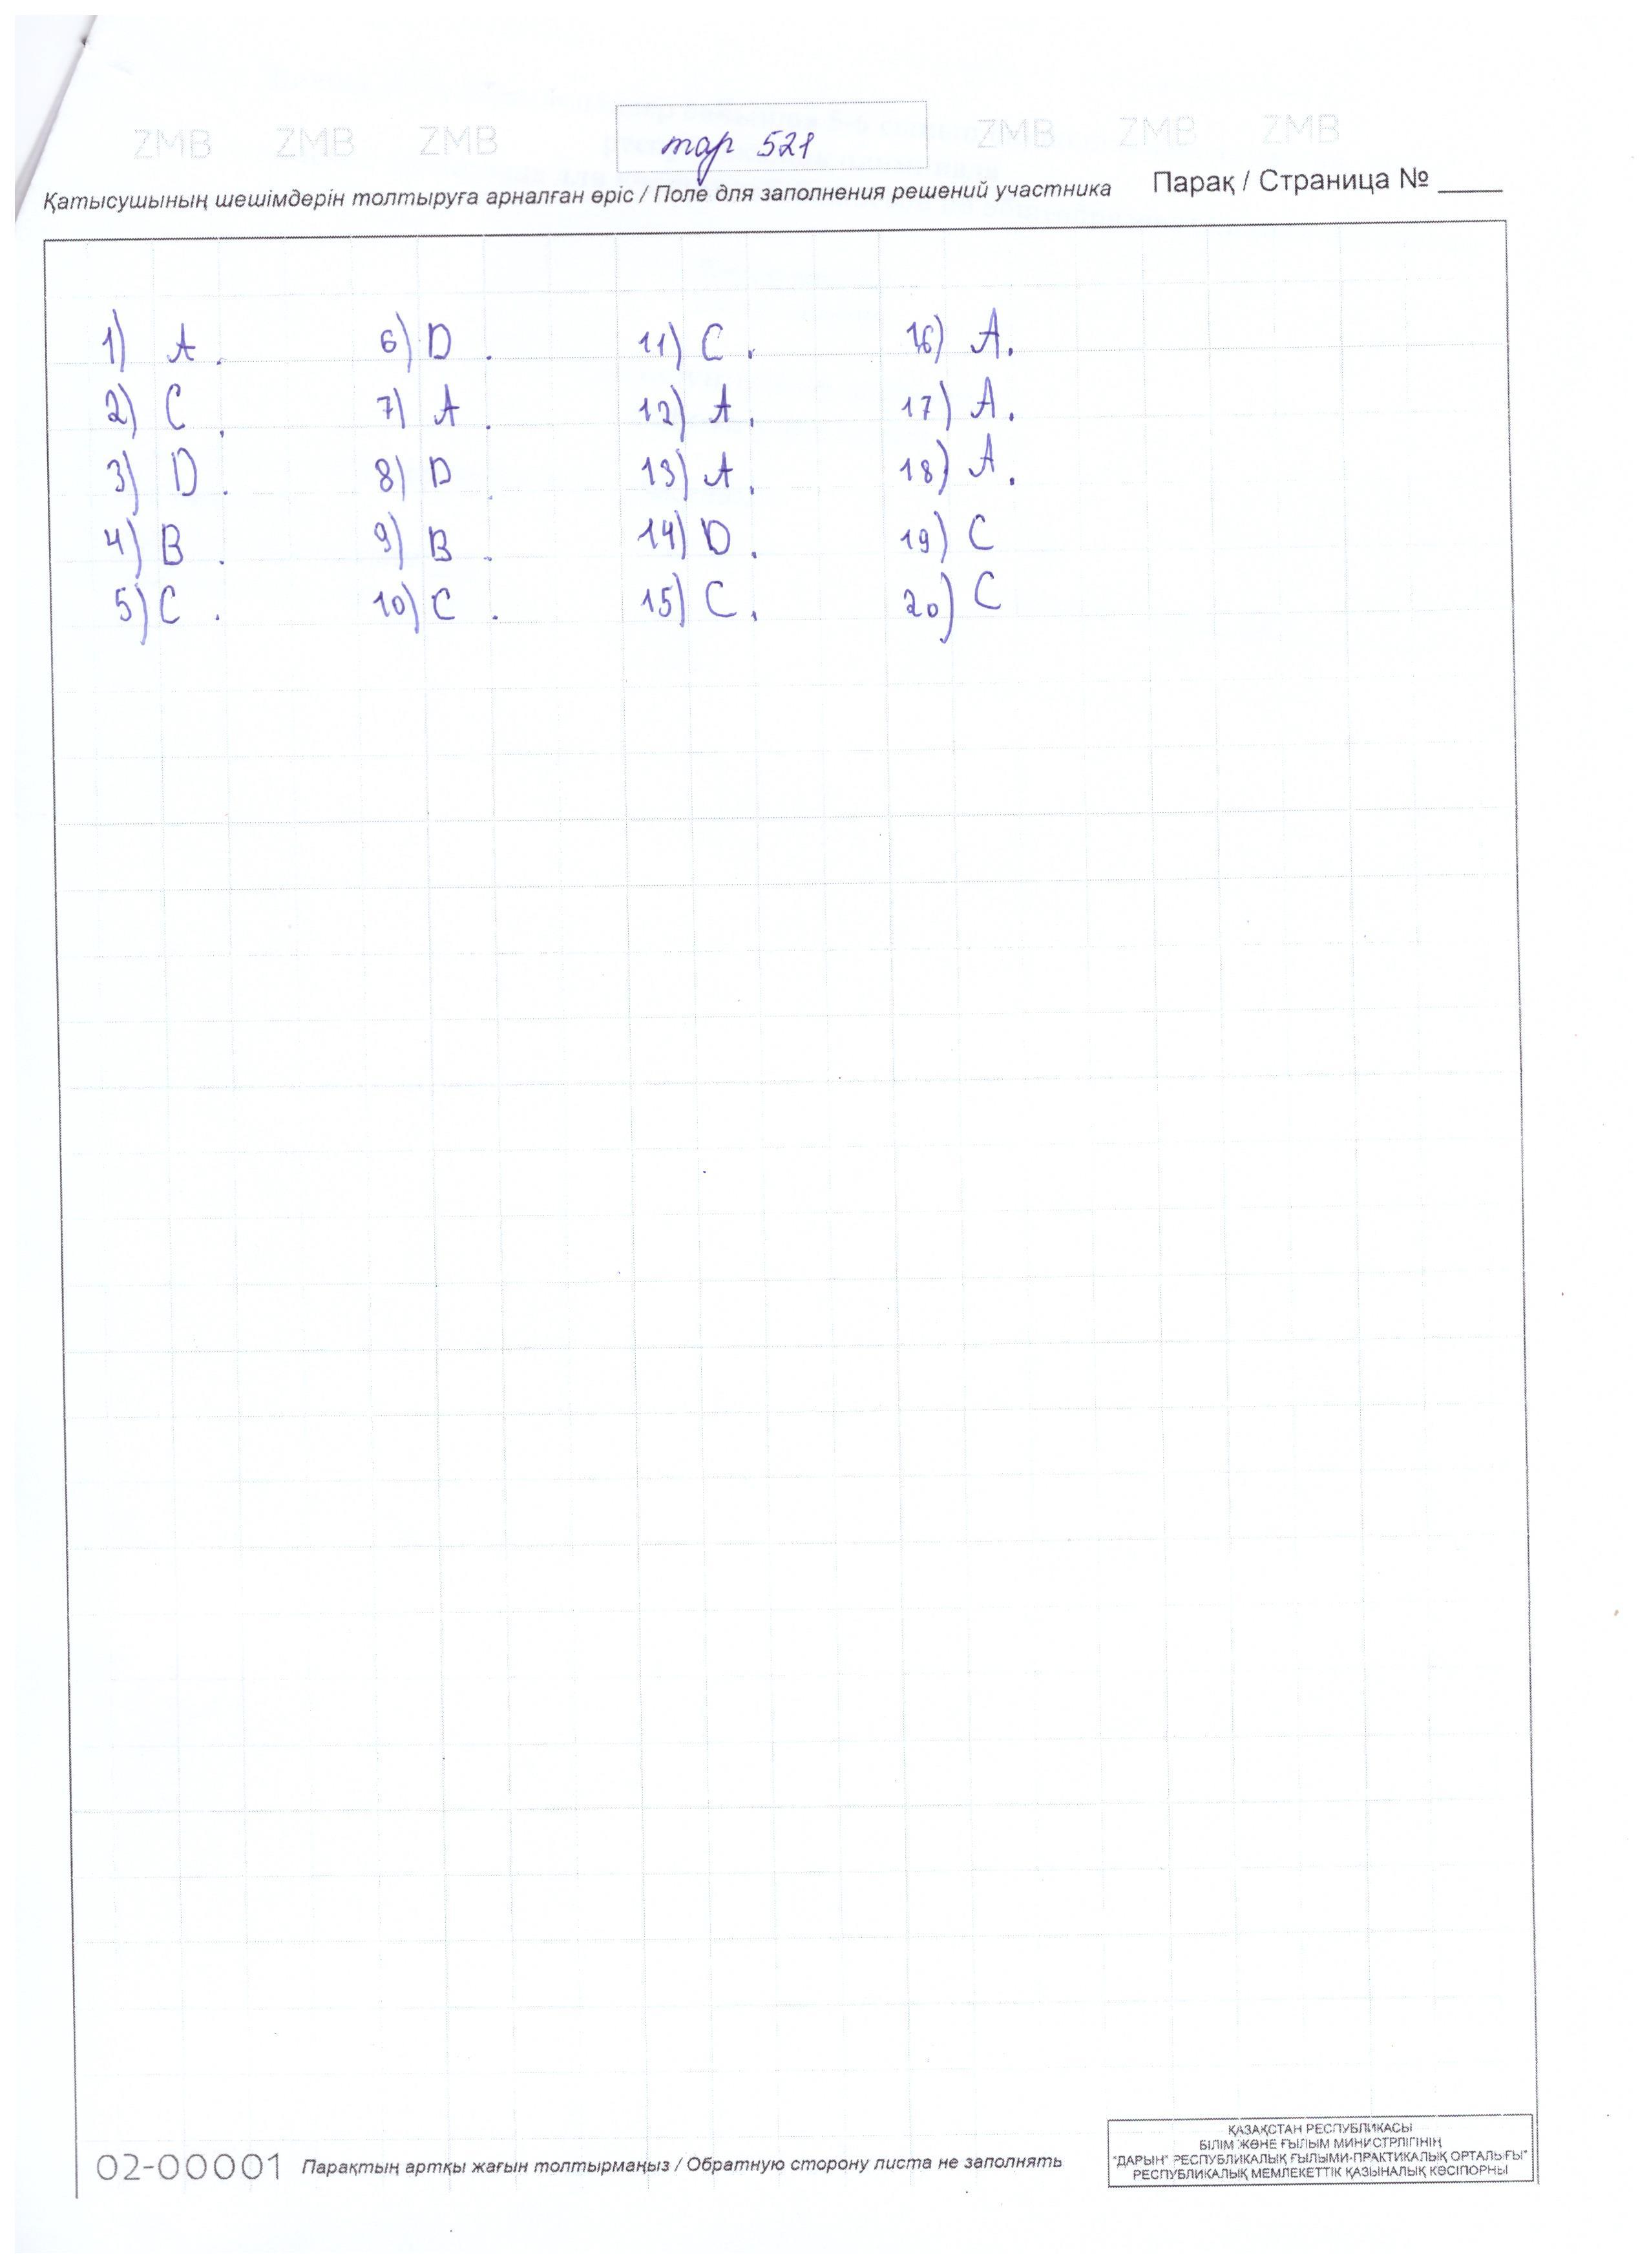 ZMB ZMB ZMB тар 521 ZMB ZMB ZMB
Қатысушының шешімдерін толтыруға арналған өріс / Поле для заполнения решений участника Парақ / Страница № ____
1) A . 6) D . 11) C . 16) A.
2) C . 7) A . 12) A . 17) A.
3) D . 8) D . 13) A . 18) A.
4) B . 9) B . 14) D . 19) C
5) C . 10) C . 15) C . 20) C
02-00001 Парақтың артқы жағын толтырмаңыз / Обратную сторону листа не заполнять
ҚАЗАҚСТАН РЕСПУБЛИКАСЫ
БІЛІМ ЖӘНЕ ҒЫЛЫМ МИНИСТРЛІГІНІҢ
"ДАРЫН" РЕСПУБЛИКАЛЫҚ ҒЫЛЫМИ-ПРАКТИКАЛЫҚ ОРТАЛЫҒЫ"
РЕСПУБЛИКАЛЫҚ МЕМЛЕКЕТТІК ҚАЗЫНАЛЫҚ КӘСІПОРНЫ